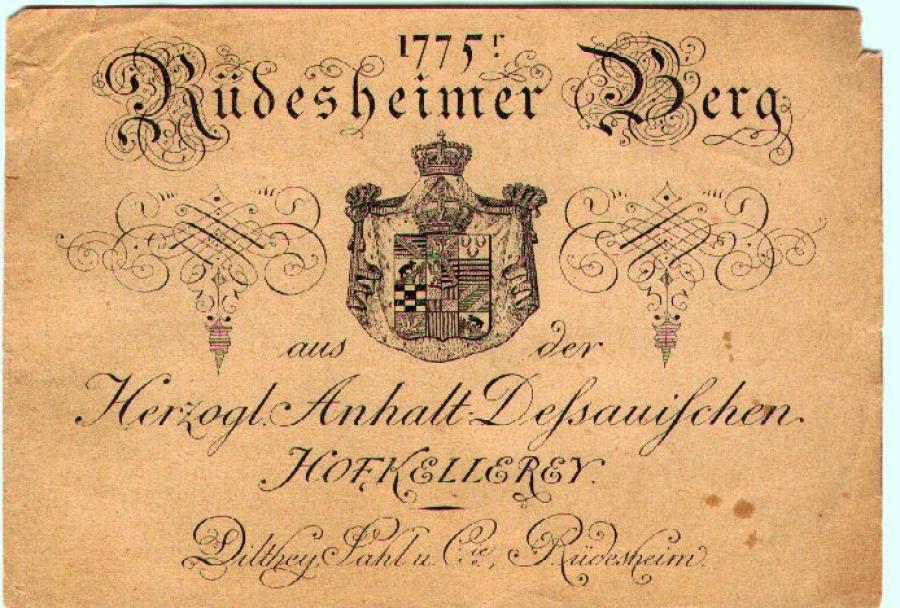 1775r
Rüdesheimer Berg
aus der
Herzogl. Anhalt-Deſsauiſchen
HOFKELLEREY.
Dilthey, Sahl u. Cie., Rüdesheim.